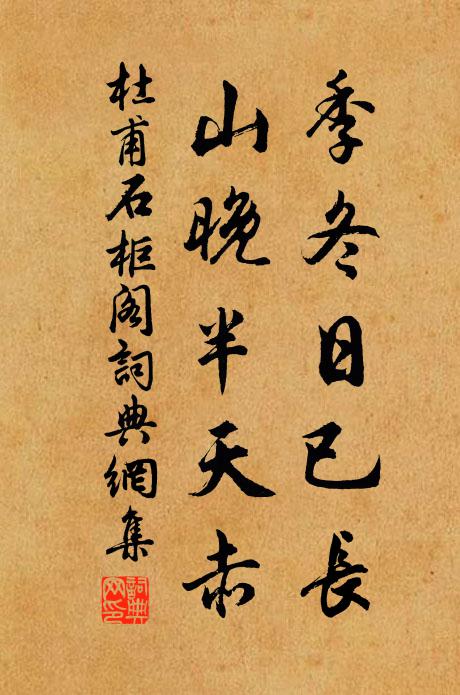 季冬日已長
山晚半天赤
杜甫石柜閣詞典網集
詞典
网印